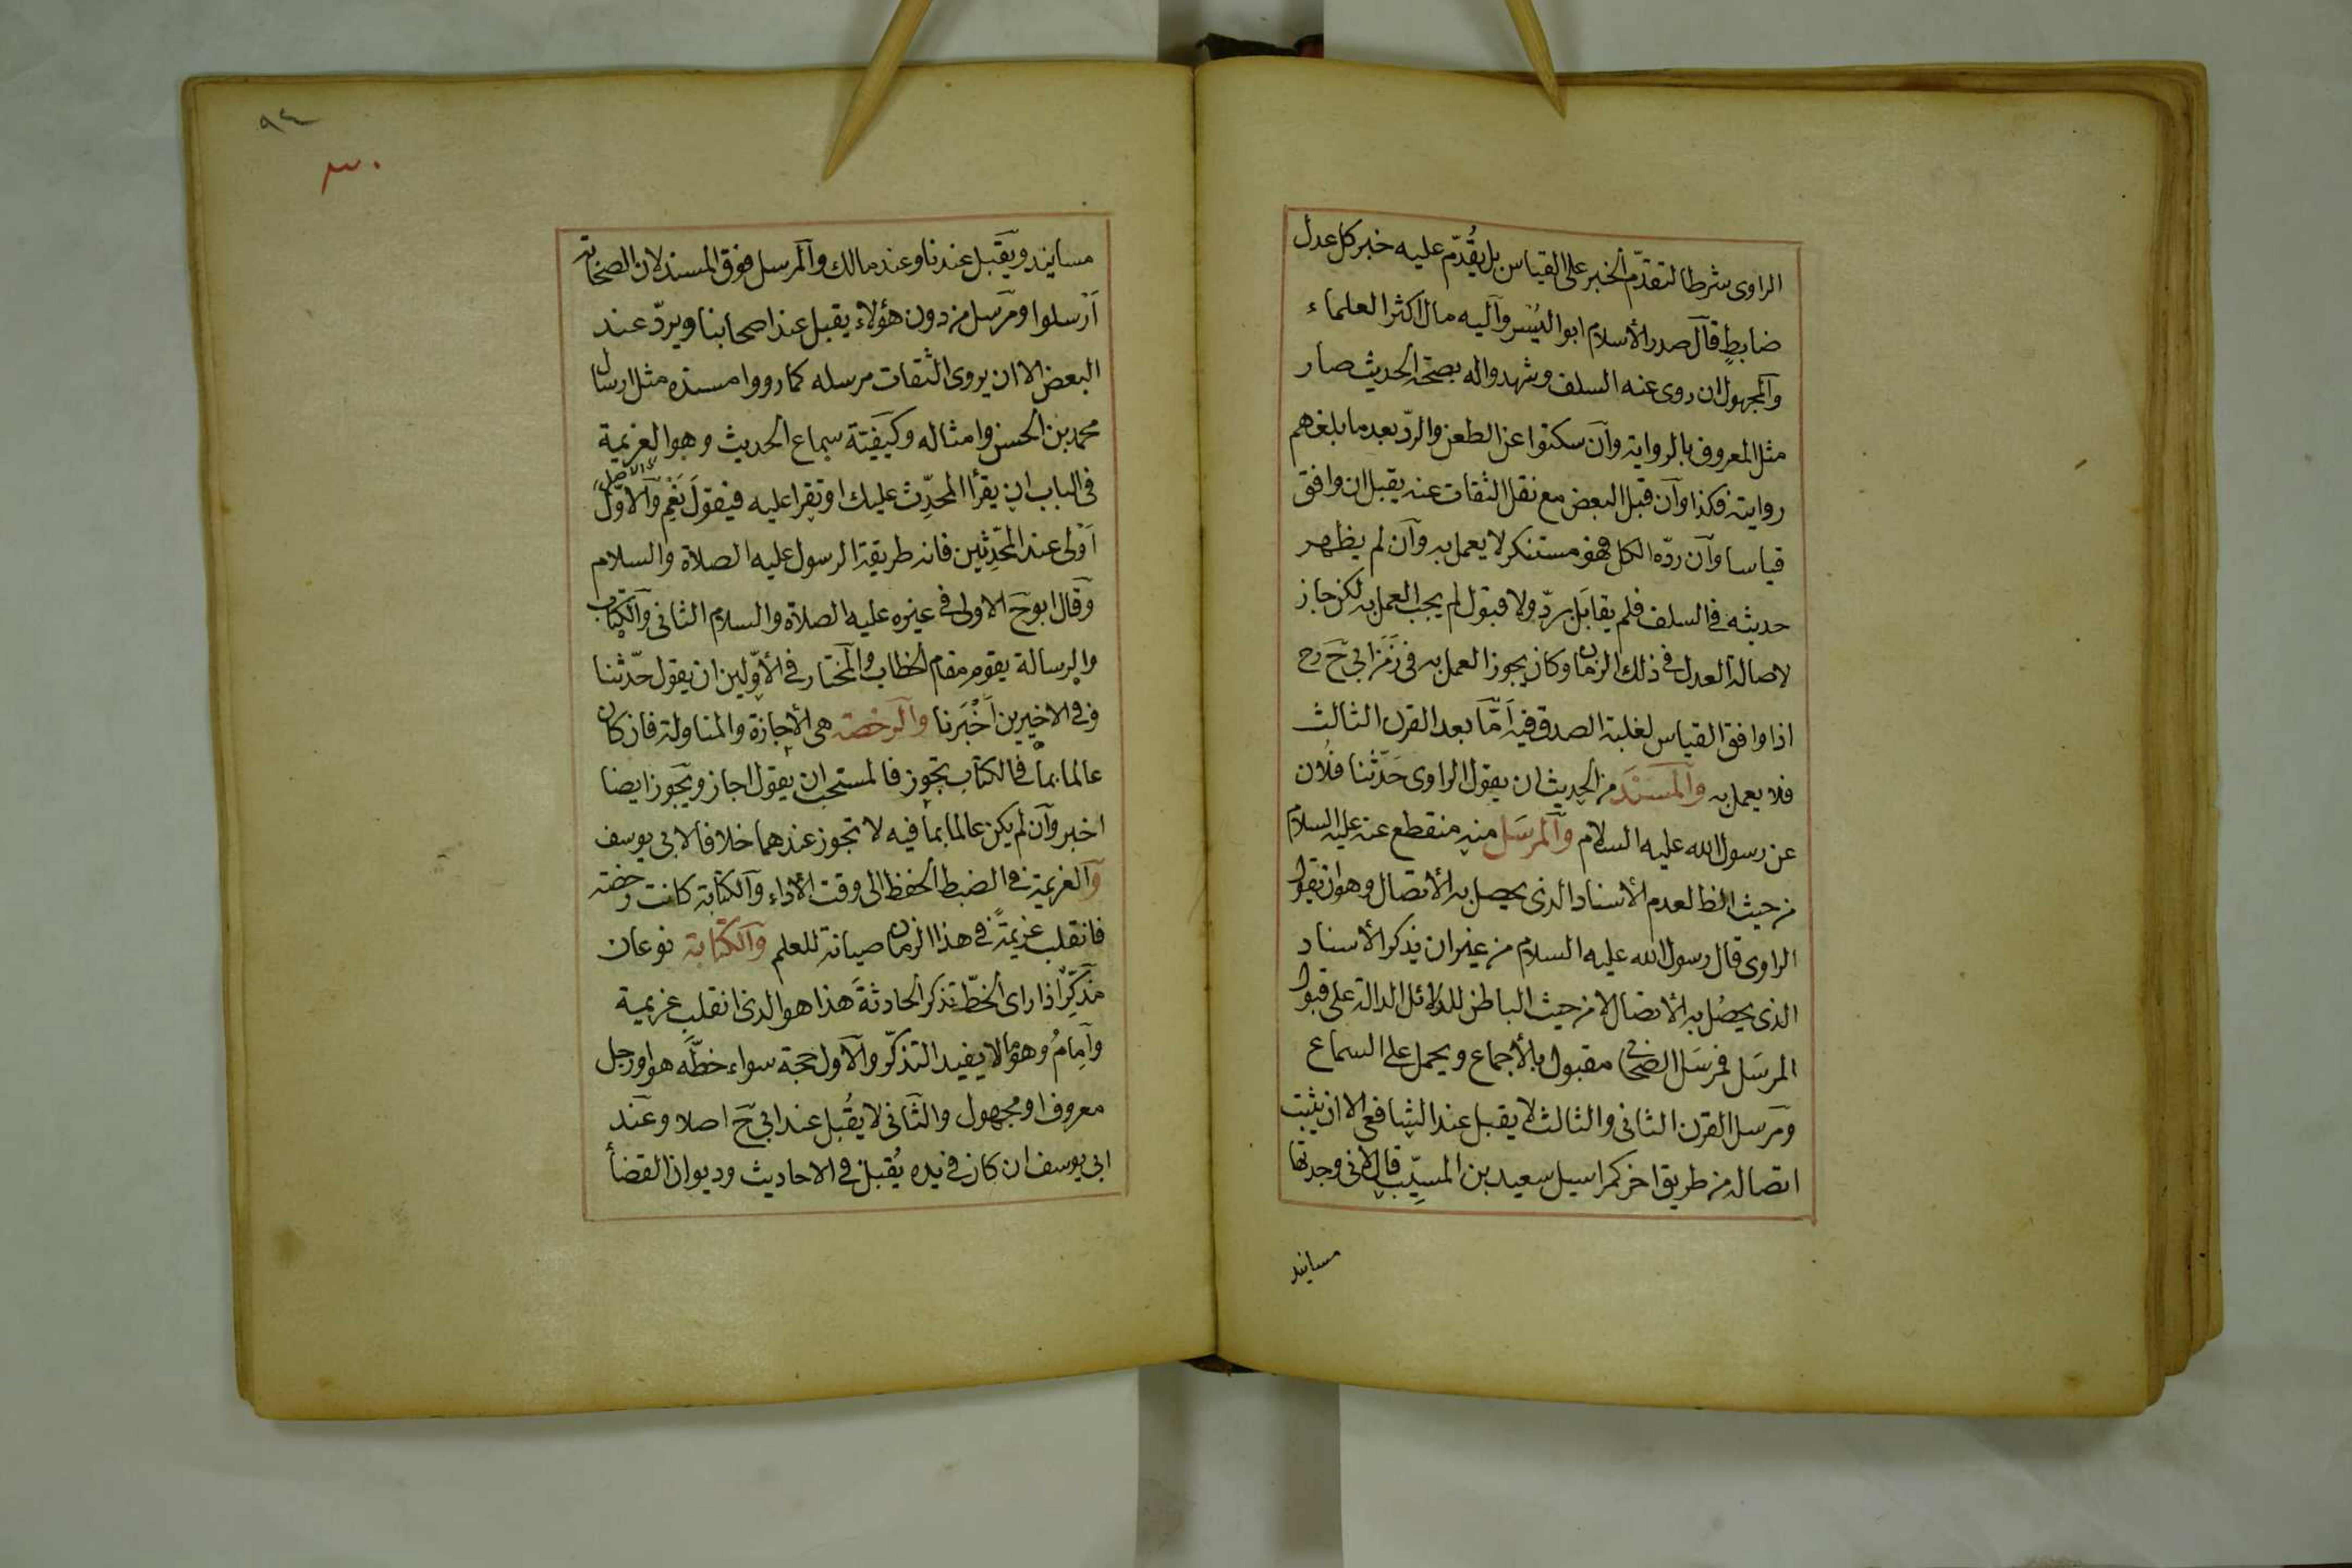 الراوى شرطا لتقدّم الخبر على القياس بل يُقُدّم عليه خبر كل عدل
ضابطٍ قآل صدر الأسلام ابو اليُسْر وآليه مال اكثر العلماء
وآلمجهول ان روى عنه السلف وشهدوا له بصحّة الحديث صار
مثل المعروف بالرواية وآن سكتوا عن الطعن والردّ بعد ما بلغهم
روايته فكذا وآن قبل البعض مع نقل الثقات عنه يقبل ان وافق
قياسا وآن ردّه الكل فهو مستنكر لا يعمل به وآن لم يظهر
حديثه فى السلف فلم يقابَل بردّ ولا قبول لم يجب العمل به لكن جاز
لاصالة العدل فى ذلك الزمان وكان يجوز العمل به فى زَمَن ابى حَ رح
اذا وافق القياس لغلبة الصدق فيه اَمّا بعد القرن الثالث
فلا يعمل به وآلمسْنَد من الحديث ان يقول الراوى حَدّثنا فلُان
عن رسول الله عليه السلام وآلمرسَل منه منقطع عنه عليه السلام
من حيث الظ لعدم الأسناد الذى يحصل به الأتصال وهو ان يقول
الراوى قال رسول الله عليه السلام من غير ان يذكر الأسناد
الذى يحصُل به الأتصال لا من حيث الباطن للدلائل الدالة على قبول
المرسَل فمرسَل الصحابى مقبول بالأجماع ويحمل على السماع
ومَرسل القرن الثانى والثالث لا يقبل عند الشافعى الا ان يثبت
اتصاله من طريق اخر كمراسيل سعيد بن المسيِّب قال لانى وجدتها
مسانيد
٩٤
٣٠
مسانيد ويَقَبل عندنا وعند مالك وآلمرسل فوق المسند لان الصحابة
اَرْسلوا ومَرسَل من دون هؤلاء يقبل عند اصحابنا ويردّ عند
البعض الا ان يروى الثقات مرسله كما رووا مسنده مثل ارسال
محمد بن الحسن وامثاله وكَيفيّة سماع الحديث وهو العزيمة
فى الباب ان يقرأ المحدِّث عليك او تقرا عليه فيقولَ نَعَم وآلاوّل
اَوْلى عند المحَدِّثين فانه طريقة الرسول عليه الصلاة والسلام
وقَال ابو حَ الاولى فى غيره عليه الصلاة والسلام الثانى وآلكتاب
والرسالة يقوم مقام الخطاب وآلمختار فى الأوّلين ان يقول حدّثنا
وفى الاخيرين اَخْبَرنا وآلرخصة هى الأجازة والمناولة فان كان
عالما بما فى الكتاب تجوز فالمستحب ان يقول اجاز ويَجوز ايضا
اخبر وآن لم يكن عالما بما فيه لا تجوز عندهما خلافا لابى يوسف
وآلعزيمة فى الضبط الحفظ الى وقت الأداء وآلكتابة كانت رخصة
فانقلب عزيمةً فى هذا الزمان صيانة للعلم وآلكتابة نوعان
مَذكِّرٌ اذا راى الخطّ تذكر الحادثةَ هَذا هو الذى انقلب عزيمة
وآِمِامٌ وهو ما لا يفيد التذكّر وآلاول حجة سواء خطّه هو او رجل
معروف او مجهول والثَانى لا يقُبل عند ابى حَ اصلا وعَند
ابى يوسف ان كان فى يده يُقبل فى الاحاديث وديوان القضأ